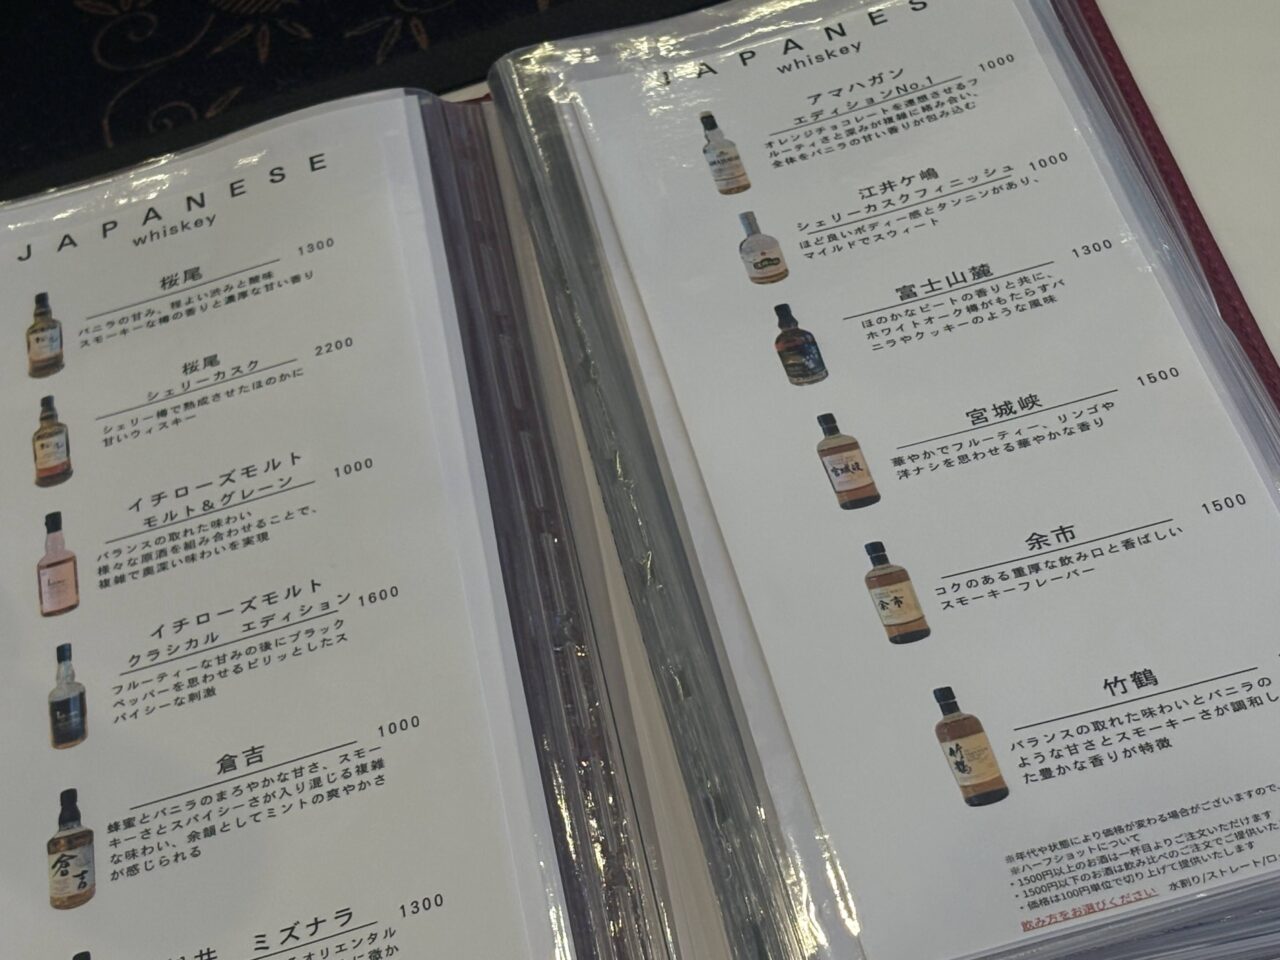 JAPANESE
whiskey
桜尾
1300
バニラの甘み、程よい渋みと酸味
スモーキーな樽の香りと濃厚な甘い香り
桜尾
シェリーカスク
2200
シェリー樽で熟成させたほのかに
甘いウィスキー
イチローズモルト
モルト&グレーン
1000
バランスの取れた味わい
様々な原酒を組み合わせることで、
複雑で奥深い味わいを実現
イチローズモルト
クラシカル エディション
1600
フルーティーな甘みの後にブラック
ペッパーを思わせるピリッとしたス
パイシーな刺激
倉吉
1000
蜂蜜とバニラのまろやかな甘さ、スモー
キーさとスパイシーさが入り混じる複雑
な味わい、余韻としてミントの爽やかさ
が感じられる
倉吉
井 ミズナラ
1300
オリエンタル
に微か
JAPANES
whiskey
アマハガン
エディションNo.1
1000
オレンジチョコレートを連想させるフ
ルーティさと深みが複雑に絡み合い、
全体をバニラの甘い香りが包み込む
江井ヶ嶋
シェリーカスクフィニッシュ
1000
ほど良いボディー感とタンニンがあり、
マイルドでスウィート
富士山麓
1300
ほのかなピートの香りと共に、
ホワイトオーク樽がもたらすバ
ニラやクッキーのような風味
宮城峡
1500
華やかでフルーティー、リンゴや
洋ナシを思わせる華やかな香り
宮城峡
余市
1500
コクのある重厚な飲み口と香ばしい
スモーキーフレーバー
余市
竹鶴
バランスの取れた味わいとバニラの
ような甘さとスモーキーさが調和し
た豊かな香りが特徴
竹鶴
※年代や状態により価格が変わる場合がございますので、
※ハーフショットについて
・1500円以上のお酒は一杯目よりご注文いただけます
・1500円以下のお酒は飲み比べのご注文でご提供いた
・価格は100円単位で切り上げて提供いたします
飲み方をお選びください 水割り/ストレート/ロ